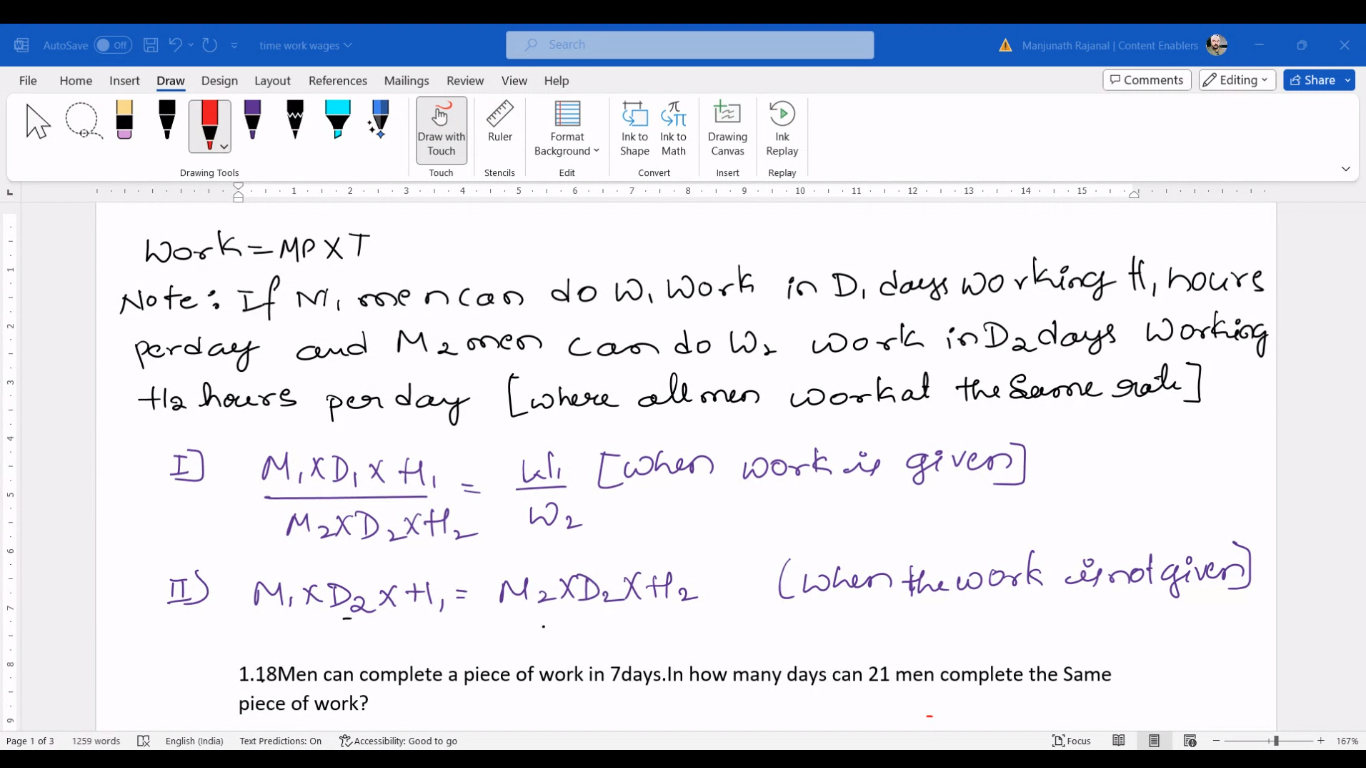 AutoSave Off time work wages Search Manjunath Rajanal | Content Enablers
File Home Insert Draw Design Layout References Mailings Review View Help Comments Editing Share
Draw with Touch Ruler Format Background Ink to Shape Ink to Math Drawing Canvas Ink Replay
Drawing Tools Touch Stencils Edit Convert Insert Replay
1 2 3 4 5 6 7 8 9 10 11 12 13 14 15
Work = MP X T
Note: If M1 men can do W1 Work in D1 days working H1 hours
perday and M2 men can do W2 work in D2 days working
H2 hours per day [where all men work at the same rate]
I] M1 X D1 X H1 / M2 X D2 X H2 = W1 / W2 [when work is given]
II) M1 X D2 X H1 = M2 X D2 X H2 (when the work is not given]
1.18Men can complete a piece of work in 7days.In how many days can 21 men complete the Same
piece of work?
Page 1 of 3 1259 words English (India) Text Predictions: On Accessibility: Good to go Focus 167%